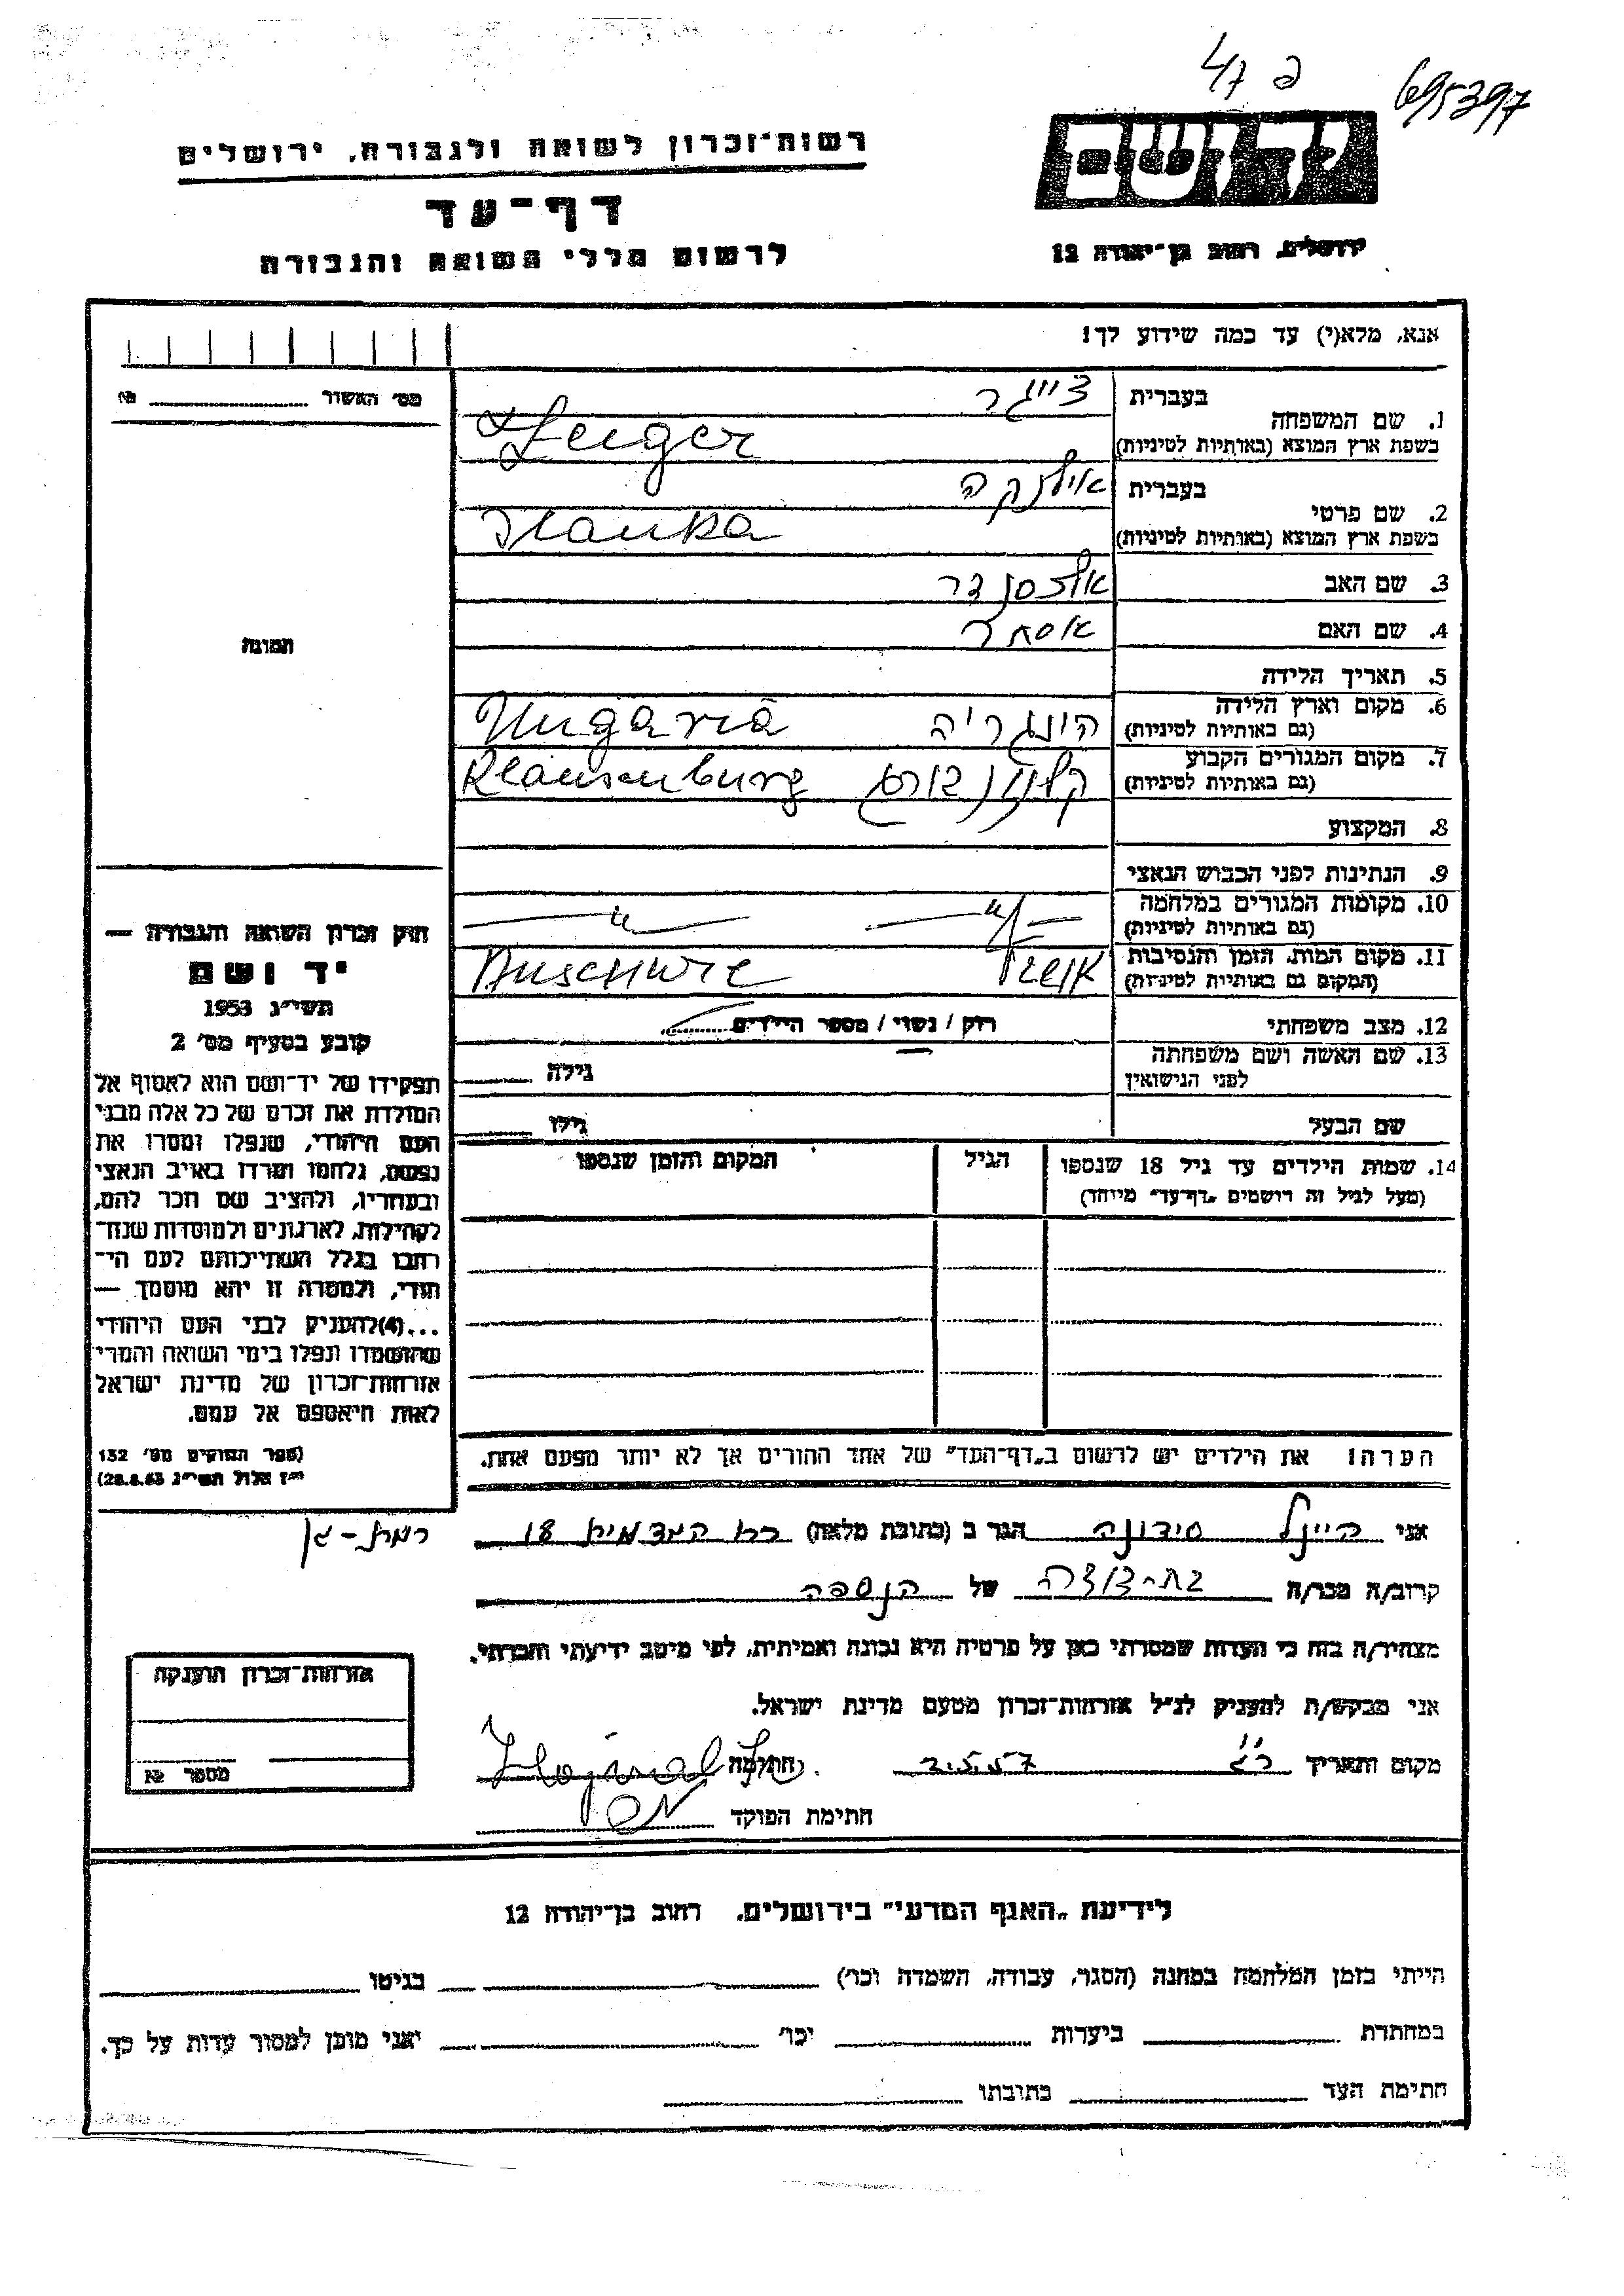 פ 47
695397
רשות־זכרון לשואה ולגבורה, ירושלים
יד ושם
דף־עד
לרשום חללי השואה והגבורה
ירושלים, רחוב בן־יהודה 12
אנא, מלא(י) עד כמה שידוע לך!
מס' האשור № 
1. שם המשפחה
בעברית צייגר
בשפת ארץ המוצא (באותיות לטיניות) Zeiger
2. שם פרטי
בעברית אילנקה
בשפת ארץ המוצא (באותיות לטיניות) Ilanka
3. שם האב אלכסנדר
4. שם האם אסתר
תמונה
5. תאריך הלידה
6. מקום וארץ הלידה הונגריה Ungaria
(גם באותיות לטיניות)
7. מקום המגורים הקבוע קלויזנבורג Klausenburg
(גם באותיות לטיניות)
8. המקצוע
9. הנתינות לפני הכבוש הנאצי
10. מקומות המגורים במלחמה — " — — " —
(גם באותיות לטיניות)
11. מקום המות, הזמן והנסיבות Auschwic
(המקום גם באותיות לטיניות)
12. מצב משפחתי רוק / נשוי / מספר הילדים
13. שם האשה ושם משפחתה גילה
לפני הנישואין
שם הבעל גילו
14. שמות הילדים עד גיל 18 שנספו הגיל המקום והזמן שנספו
(מעל לגיל זה רושמים „דף־עד" מיוחד)
חוק זכרון השואה והגבורה —
יד ושם
תשי"ג 1953
קובע בסעיף מס' 2
תפקידו של יד־ושם הוא לאסוף אל
המולדת את זכרם של כל אלה מבני
העם היהודי, שנפלו ומסרו את
נפשם, נלחמו ומרדו באויב הנאצי
ובעוזריו, ולהציב שם וזכר להם,
לקהילות, לארגונים ולמוסדות שנח־
רבו בגלל השתייכותם לעם הי־
הודי, ולמטרה זו יהא מוסמך —
...(4)להעניק לבני העם היהודי
שהושמדו ונפלו בימי השואה והמרי
אזרחות־זכרון של מדינת ישראל
לאות היאספם אל עמם.
(ספר החוקים מס' 132
י"ז אלול תשי"ג 28.8.53)
הערה! את הילדים יש לרשום ב„דף־העד" של אחד ההורים אך לא יותר מפעם אחת.
אני סידונה הגר ב (כתובת מלאה) 18 רמת-גן
קרוב/ה מכר/ה בת-דודה של הנספה
מצהיר/ה בזה כי העדות שמסרתי כאן על פרטיה היא נכונה ואמיתית, לפי מיטב ידיעתי והכרתי.
אני מבקש/ת להעניק לנ"ל אזרחות־זכרון מטעם מדינת ישראל.
מקום ותאריך ר"ג 2.5.57 חתימה
חתימת הפוקד
אזרחות־זכרון הוענקה
מספר №
לידיעת „האגף המדעי" בירושלים, רחוב בן־יהודה 12
הייתי בזמן המלחמה במחנה (הסגר, עבודה, השמדה וכו') בגיטו
במחתרת ביערות וכו' ואני מוכן למסור עדות על כך.
חתימת העד כתובתו